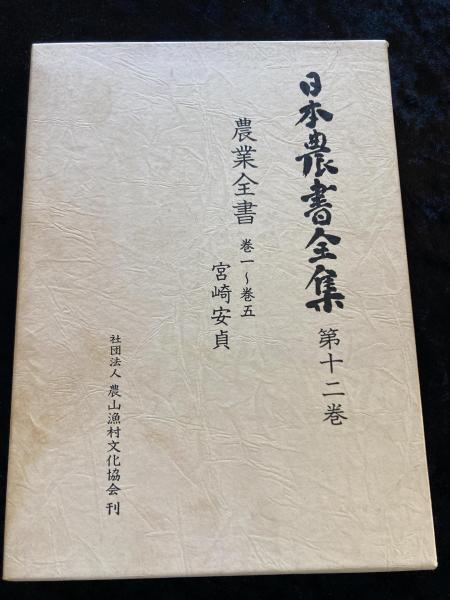 日本農書全集 第十二巻
農業全書 巻一～巻五
宮崎安貞
社団法人 農山漁村文化協会 刊